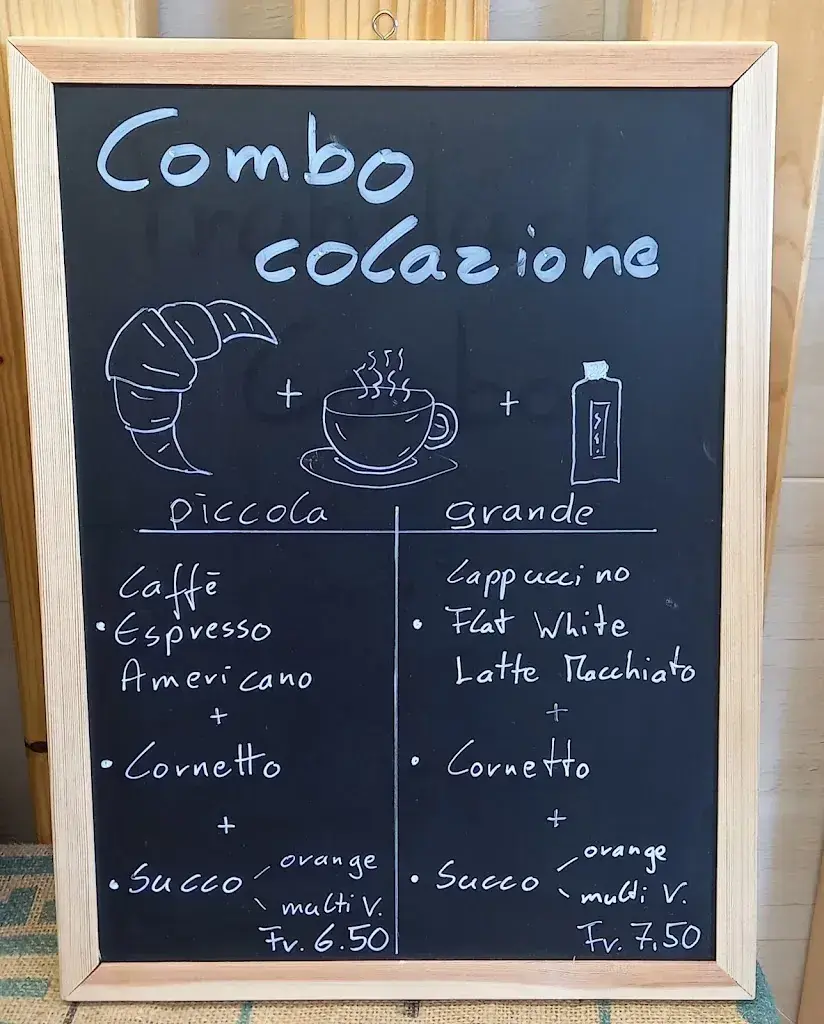 Combo
colazione
+ +
piccola
Caffē
• Espresso
Americano
+
• Cornetto
+
• Succo
orange
multi V.
Fr. 6.50
grande
Cappuccino
• Flat White
Latte Macchiato
+
• Cornetto
+
• Succo
orange
multi V.
Fr. 7.50